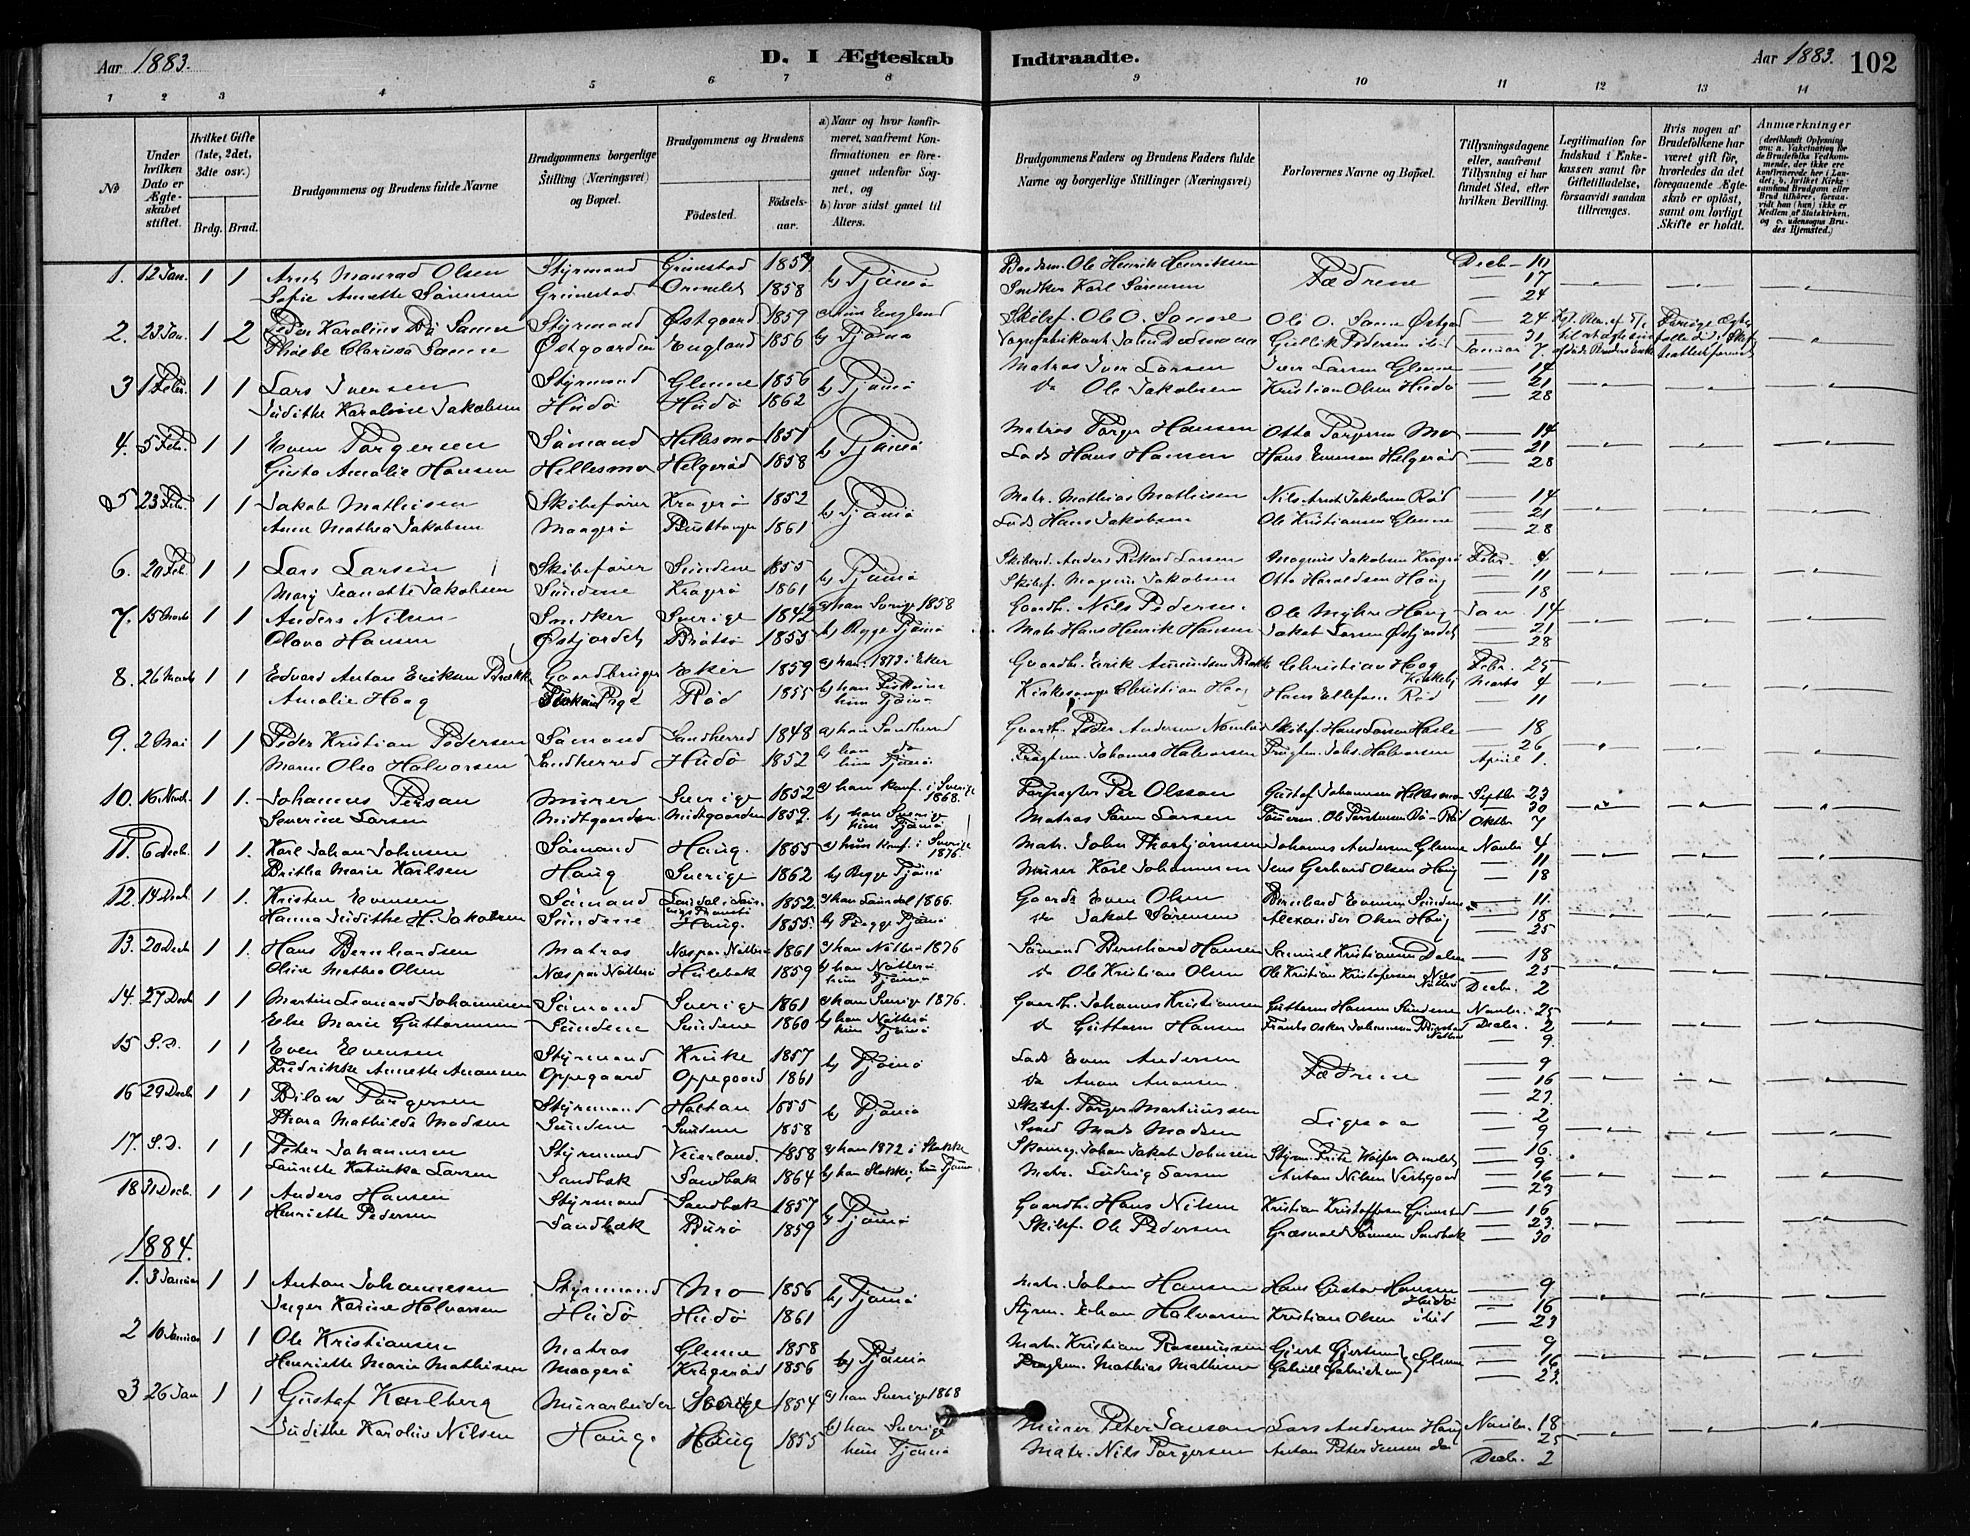 Aar 1883.
D. I Ægteskab Indtraadte.
Aar 1883. 102
1 2 3 4 5 6 7 8 9 10 11 12 13 14
No
Under hvilken Dato er Ægteskabet stiftet.
Hvilket Gifte (1ste, 2det, 3die osv.)
Brdg. Brud.
Brudgommens og Brudens fulde Navne
Brudgommens borgerlige Stilling (Næringsvei) og Bopæl.
Brudgommens og Brudens
Fødested.
Fødselsaar.
a) Naar og hvor konfirmeret, saafremt Konfirmationen er foregaaet udenfor Sognet, og
b) hvor sidst gaaet til Alters.
Brudgommens Faders og Brudens Faders fulde Navne og borgerlige Stillinger (Næringsvei)
Forlovernes Navne og Bopæl.
Tillysningsdagene eller, saafremt Tillysning ei har fundet Sted, efter hvilken Bevilling.
Legitimation for Indskud i Enkekassen samt for Giftetilladelse, forsaavidt saadan tiltrænges.
Hvis nogen af Brudefolkene har været gift før, hvorledes da det foregaaende Ægteskab er opløst, samt om lovligt Skifte er holdt.
Anmærkninger (deriblandt Oplysning om: a. Vakcination for de Brudefolks Vedkommende, der ikke ere konfirmerede her i Landet; b. hvilket Kirkesamfund Brudgom eller Brud tilhører, forsaavidt han (hun) ikke er Medlem af Statskirken, og c. udensogns Brudes Hjemsted.)
1. 12 Jan. 1 1 Arnt Manrad Olsen Styrmand Grimestad 1857 b) Tjømø Ole Henrik Henriksen Fædrene Decbr. 10
Sofie Annette Sørensen Grimestad Ormelet 1858 Snedker Karl Sørensen 17
24
2. 23 Jan. 1 2 Peder Karolius Bø Sanne Styrmand Østgaard 1859 a) hun England Skibsf. Ole O. Sanne Ole O. Sanne Østgd 24
Phoebe Clarissa Sanne Østgaarden England 1856 b) Tjømø Gullik Pedersen ibid 31
Januar 7.
3 1 Febr. 1 1 Lars Iversen Styrmand Glenne 1856 b) Tjømø Matros Iver Larsen Iver Larsen Glenne 14
Judithe Karoline Jakobsen Hudø Hudø 1862 do Ole Jakobsen Kristian Olsen Hudø 21
28
4. 5 Febr. 1 1 Even Torgersen Sømand Hellesmo 1857 b) Tjømø Matros Torger Hansen Otto Torgersen Mo 14
Gusta Amalie Hansen Hellesmo Helgerød 1858 Lods Hans Hansen Hans Evensen Helgerød 21
28
5 23 Febr. 1 1 Jakob Mathisen Skibsfører Kragerø 1852 b) Tjømø Matr. Mathias Mathisen Nils Arnt Jakobsen Rød 14
Anne Mathea Jakobsen Maagerø 1861 Lods Hans Jakobsen Ole Kristiansen Glenne 21
28
6. 20 Feb. 1 1 Lars Larsen Skibsfører Sundene 1855 b) Tjømø Anders Rikard Larsen Magnus Jakobsen Kragrø Febr. 4
Mary Jeanette Jakobsen Sundene Kragrø 1861 Skibsf. Magnus Jakobsen Otto Haraldsen Haug 11
18
7. 15 Marts 1 1 Anders Nilsen Snedker Sverige 1842 a) han Sverige 1858 Gaardb. Nils Pedersen Ole Myhre Haug Jan. 14
Olava Hansen Østjordet Brøtsø 1855 b) Begge Tjømø Matr. Hans Henrik Hansen Jakob Larsen Østjordet 21
28
8. 26 Marts 1 1 Edvard Anton Eriksen Brække Gaardbruger Eker 1859 a) han 1873 i Eker Gaardb. Erik Amundsen Brække Christian Haag Kirkeby Febr. 25
Amalie Haag Pige Rød 1855 hun Tjømø Kirkesanger Christian Haag Hans Ellefsen Rød Marts 4
11
9. 2 Mai 1 1 Peder Kristian Pedersen Sømand Sandherred 1848 a) han Sandherred Gaardb. Peder Andersen Skibsf. Hans Larsen Hasle 18
Maren Olea Halvorsen Sandherred Hudø 1852 b) han do hun Tjømø Johannes Halvorsen Johs. Halvorsen 26
April 1.
10. 16 Novb. 1 1. Johannes Persson Murer Sverige 1852 a) han konf. i Sverige 1868. Per Olsson Gustaf Johannesen Hellesmo Septbr. 23
Severine Larsen Midtgaarden Midtgaarden 1859. b) han Sverige hun Tjømø Matros Søren Larsen 30
Oktbr 7
11. 6 Decb. 1 1. Karl Johan Johnsen Sømand Haug. 1855 a) hun konf. i Sverige 1876. Matr. John Thorbjørnsen Johannes Andersen Glenne Novbr 4
Britha Marie Karlsen Haug Sverige 1862 b) Begge Tjømø Murer Karl Johannesen Jens Gerhard Olsen Haug 11
18
12. 14 Decb. 1 1 Kristen Evensen Sømand 1852. a) han Laurdal 1866. Gaardb. Even Olsen Bernhard Evensen Sundene 11.
Hanna Judithe H. Jakobsen Sundene Haug. 1855. b) Begge Tjømø do Jakob Sørensen Alexander Olsen Haug 18
25
13. 20 Decb 1 1. Hans Bernhardsen Matros Næs paa Nøtterø 1861 a) han Nøtterø 1876 Sømand Bernhard Hansen Samuel Kristiansen Dalen 18
Oline Mathea Olsen Næs paa Nøtterø Hulebak 1859 b) han Nøtterø hun Tjømø do Ole Kristian Olsen Ole Kristian Kristofersen Næs Nøtterø 25
Decbr. 2
14. 27 Decb 1 1 Martin Leonard Johannesen Sømand Sverige 1861 a) han Sverige 1876. Gaardb. Johannes Kristiansen Guttorm Hansen Sundene Novbr. 25
Else Marie Guttormsen Sundene Sundene 1860 b) han Nøtterø hun Tjømø do Guttorm Hansen Frants Oskar Johannesen Nøtterø Decbr. 2
9.
15 S.D. 1 1 Even Evensen Styrmand Kruke 1857 b) Tjømø Lods Even Andersen Fædrene 9
Fredrikke Annette Anansen Oppegaard Oppegaard 1861 do Anan Anansen. 16
23.
16 29 Decb 1 1 Torgersen Styrmand Holtan 1855 b) Tjømø Skibsf. Torger Martinussen Ligesaa 2
Thora Mathilde Madsen Sundene Sundene 1858 Smed Mads Madsen 9
16.
17. S.D. 1 1 Peter Johannesen Styrmand Veierland. 1858 a) han 1872 i Stokke Skomag. Johan Jakob Johnsen 9
Laurette Katinka Larsen Sandbæk Sandbæk 1864 b) han Stokke, hun Tjømø Matr. Ludvig Larsen Anton Nilsen Vestgaard 16
23
18 31 Decb. 1 1 Anders Hansen Styrmand Sandbæk 1857 b) Tjømø Gaardb. Hans Nilsen Kristian Kristoffersen Grimestad 16
Henriette Pedersen Sandbæk Burø 1859 Skibsf. Ole Pedersen Sandbæk 23.
30
1884.
1. 3 Januar 1 1 Anton Johannesen Styrmand Mo 1856 b) Tjømø Matr. Johan Hansen Hans Gustav Hansen Hudø 9
Inger Karine Halvorsen Hudø Hudø 1861 Styrm. Johan Halvorsen Kristian Olsen ibid 16
23
2 10 Januar 1 1 Ole Kristiansen Matros Glenne 1858 b) Tjømø Matr. Kristian Rasmussen Gjert Gjertsen } Glenne 9
Henriette Marie Mathisen Maagerø Kragerød 1856 Mathias Mathisen Gabriel Gabrielsen 16
23.
3 26 Jan 1 1 Gustaf Karlberg Murarbeider Sverige 1854 a) han Sverige 1868 Murer Peter Jansson Lars Andersen Haug Novbr. 18
Judithe Karoline Nilsen Haug. Haug 1855 b) han Sverige hun Tjømø Matr. Nils Torgersen Anton Peter Jensen do 25
Decbr. 2